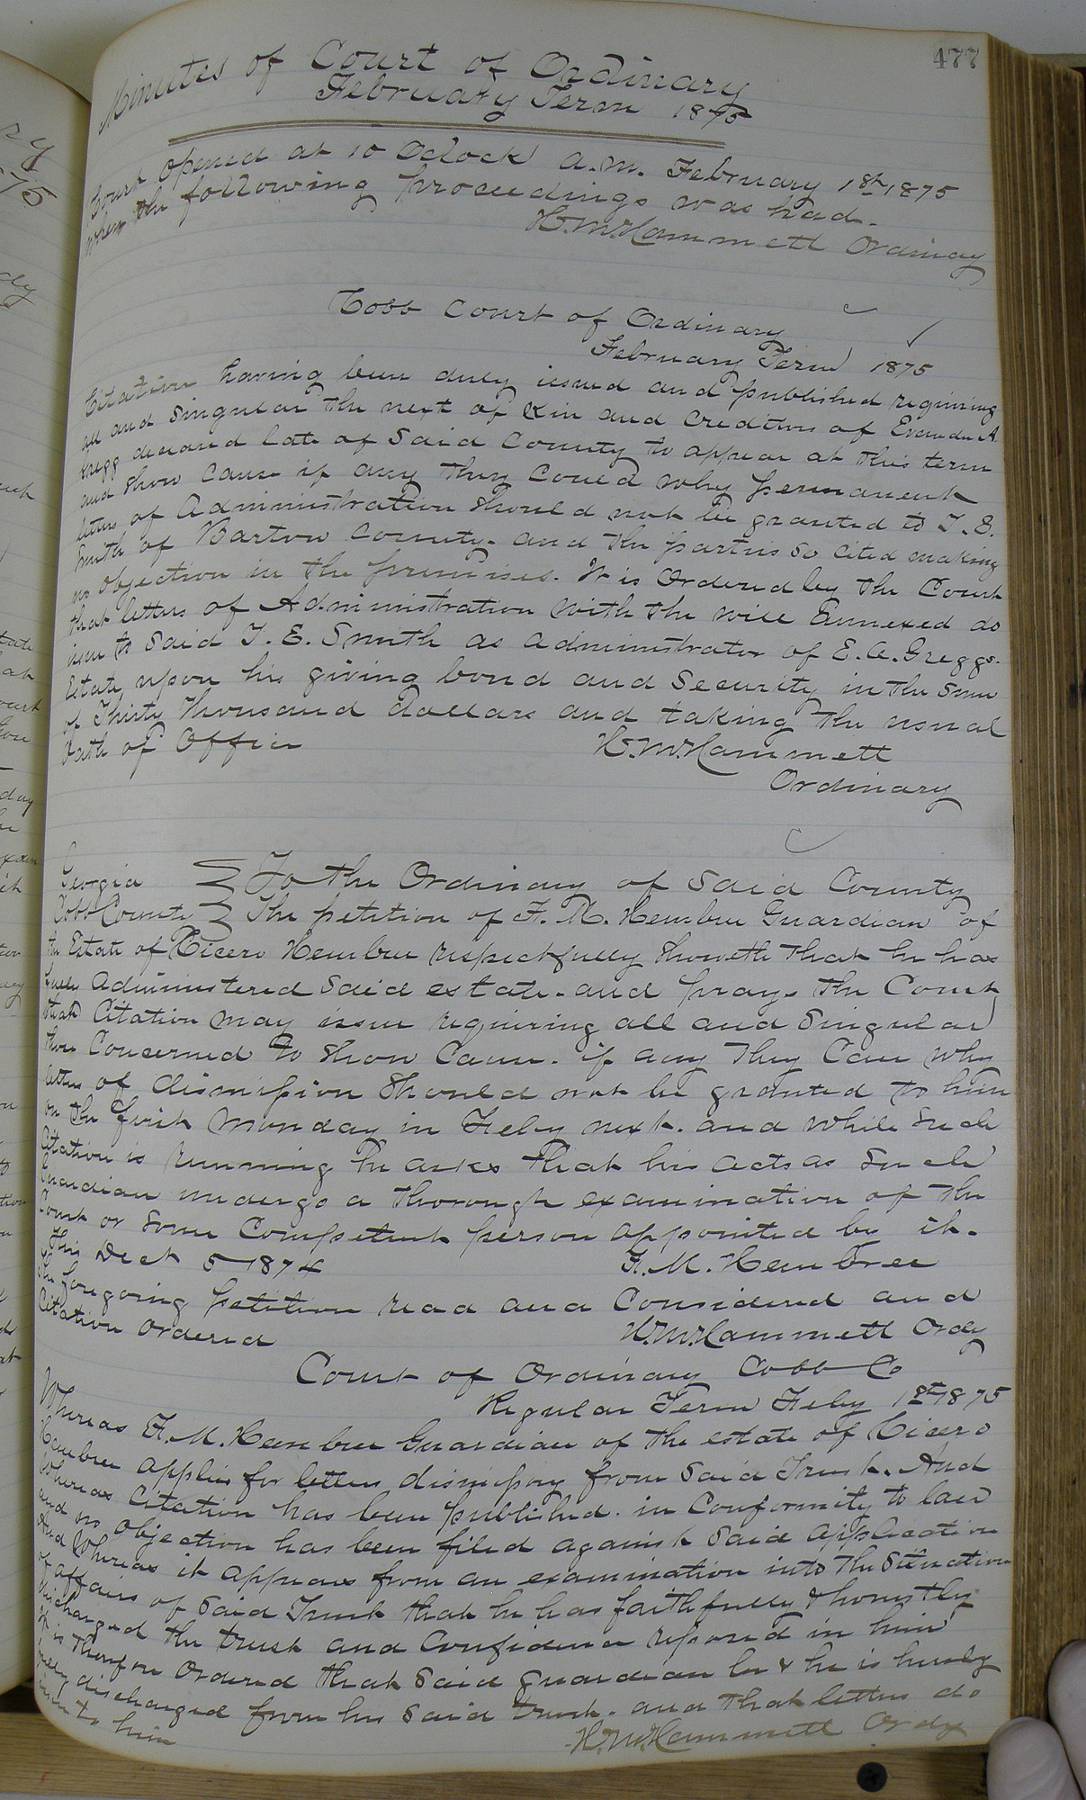 477
Minutes of Court of Ordinary
February Term 1875
Court opened at 10 Oclock a.m. February 1st 1875
when the following proceedings was had.
H.M. Hammett Ordinary
Cobb Court of Ordinary
February Term 1875
Citation having been duly issued and published requiring
all and singular the next of Kin and Creditors of Evander A
Gregg deceased late of Said County to appear at this term
and show cause if any they could why permanent
letters of Administration should not be granted to T. E.
Smith of Bartow County. and the parties so cited making
no objection in the premises. It is Ordered by the Court
that letters of Administration with the will Annexed do
issue to Said T. E. Smith as administrator of E. A. Greggs
Estate upon his giving bond and Security in the Sum
of Thirty Thousand dollars and taking the usual
Oath of Office
H.M. Hammett
Ordinary
Georgia To the Ordinary of Said County
Cobb County The petition of F. M. Hembree Guardian of
the Estate of Cicero Hembree respectfully Showeth that he has
fully Administered Said estate. and prays the Court
that Citation may issue requiring all and Singular
those Concerned to Show Cause. if any they Can why
letters of dismission Should not be granted to him
on the first Monday in Feby next. and while Such
Citation is running he asks that his acts as Such
Guardian undergo a thorough examination of the
Court or Some Competent person appointed by it.
This Dect 5 1874
F. M. Hembree
The foregoing petition read and Considered and
Citation Ordered
H.M. Hammett Ordy
Court of Ordinary Cobb Co
Regular Term Feby 1st 1875
Whereas F. M. Hembree Guardian of the estate of Cicero
Hembree applies for letters dismissory from Said Trust. And
Whereas Citation has been published. in Conformity to law
and no objection has been filed against Said application
And Whereas it appears from an examination into the Situation
of affairs of Said Trust that he has faithfully & honestly
discharged the trust and Confidence reposed in him
it is therefore Ordered that Said guardian be & he is hereby
fully discharged from his Said trust. and that letters do
issue to him
H.M. Hammett Ordy